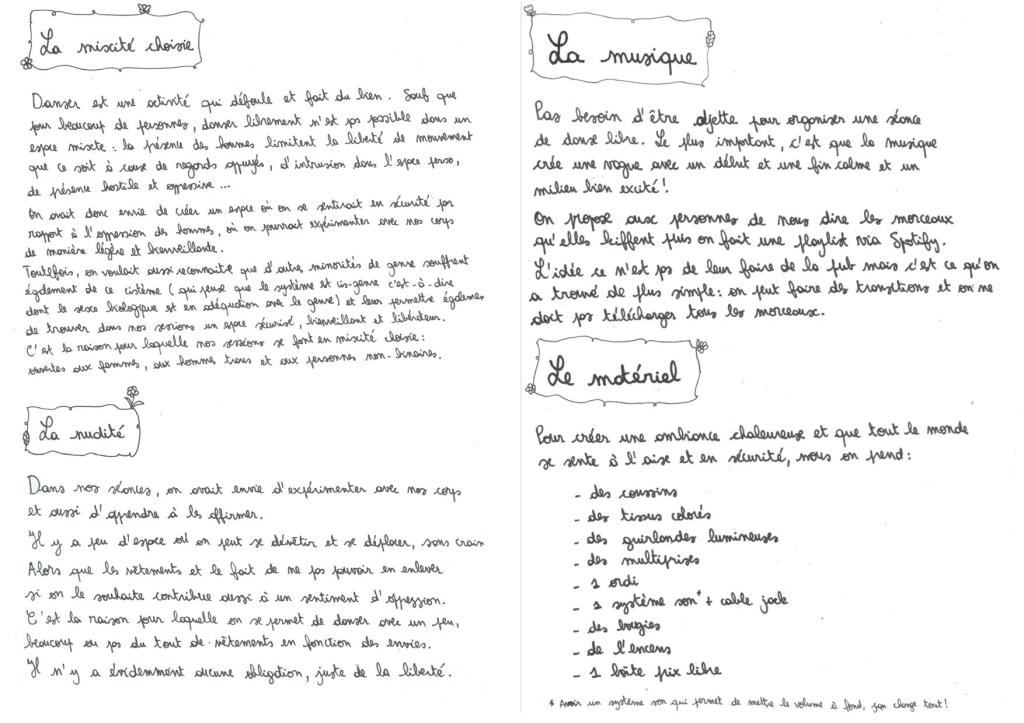 La mixité choisie
Danser est une activité qui défoule et fait du bien. Sauf que
pour beaucoup de personnes, danser librement n'est pas possible dans un
espace mixte : la présence des hommes limitent la liberté de mouvement
que ce soit à cause de regards appuyés, d'intrusion dans l'espace perso,
de présence hostile et oppressive ...
On avait donc envie de créer un espace où on se sentirait en sécurité par
rapport à l'oppression des hommes, où on pourrait expérimenter avec nos corps
de manière légère et bienveillante.
Toutefois, on voulait aussi reconnaitre que d'autres minorités de genre souffrent
également de ce cistème (qui pense que le système est cis-genre c'est-à-dire
dont le sexe biologique est en adéquation avec le genre) et leur permettre également
de trouver dans nos sessions un espace sécurisé, bienveillant et libérateur.
C'est la raison pour laquelle nos sessions se font en mixité choisie:
ouvertes aux femmes, aux hommes trans et aux personnes non-binaires.
La nudité
Dans nos séances, on avait envie d'expérimenter avec nos corps
et aussi d'apprendre à les affirmer.
Il y a peu d'espace où on peut se dévêtir et se déplacer, sans crain
Alors que les vêtements et le fait de ne pas pouvoir en enlever
si on le souhaite contribue aussi à un sentiment d'oppression.
C'est la raison pour laquelle on se permet de danser avec un peu,
beaucoup ou pas du tout de vêtements en fonction des envies.
Il n'y a évidemment aucune obligation, juste de la liberté.
La musique
Pas besoin d'être djette pour organiser une séance
de danse libre. Le plus important, c'est que la musique
crée une vague avec un début et une fin calme et un
milieu bien excité !
On propose aux personnes de nous dire les morceaux
qu'elles kiffent puis on fait une playlist via Spotify.
L'idée ce n'est pas de leur faire de la pub mais c'est ce qu'on
a trouvé de plus simple: on peut faire des transitions et on ne
doit pas télécharger tous les morceaux.
Le matériel
Pour créer une ambiance chaleureuse et que tout le monde
se sente à l'aise et en sécurité, nous on prend :
- des coussins
- des tissus colorés
- des guirlandes lumineuses
- des multiprises
- 1 ordi
- 1 système son* + cable jack
- des bougies
- de l'encens
- 1 boîte prix libre
* Avoir un système son qui permet de mettre le volume à fond, ça change tout !